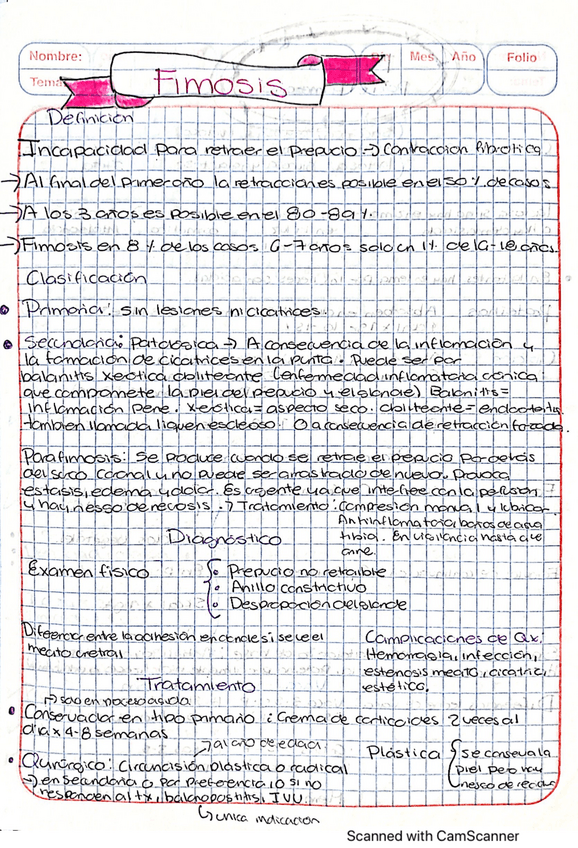 Nombre:
Mes Año
Folio
Fimosis
Definición
Incapacidad para retraer el prepucio → Contracción fibrotica
→ Al final del primer año la retracción es posible en el 50 % de casos
→ A los 3 años es posible en el 80-89 %
→ Fimosis en 8 % de los casos 6-7 años solo en 1% de 16-18 años.
Clasificación
• Primaria: sin lesiones ni cicatrices
• Secundaria: Patologica → A consecuencia de la inflamación y
la formación de cicatrices en la punta. Puede ser por
balanitis xerotica obliterante (enfermedad inflamatoria cronica
que compromete la piel del prepucio y el glande) Balanitis =
inflamación pene. xerotica = aspecto seco. obliterante =
tambien llamada liquen escleroso. O a consecuencia de retracción forzada.
Parafimosis: Se produce cuando se retrae el prepucio por detras
del surco coronal y no puede ser arrastrado de nuevo. Provoca
estasis, edema y dolor. Es urgente ya que interfiere con la perfusion
y hay riesgo de necrosis. → Tratamiento: compresión manual y ubicar.
Antiinflamatorio, baños de agua
tibia. En vigilancia hasta que
orine.
Diagnóstico
Examen fisico
• Prepucio no retraible
• Anillo constrictivo
• Desproporción del glande
Diferencia entre la adhesión en donde si se ve el
meato uretral
Complicaciones de Qx:
Hemorragia, infección,
estenosis meato, cicatriz,
estética.
Tratamiento
→ solo en no
• Conservador en tipo primario: Crema de corticoides 2 veces al
dia x 4-8 semanas
→ al año de edad
• Quirúrgico: Circuncisión plástica o radical
→ en secundaria o por preferencia, o si no
responden al tx, balanopostitis, IVU.
↳ unica indicación
Plástica
se conserva la
piel pero hay
riesgo de recidiva
Scanned with CamScanner